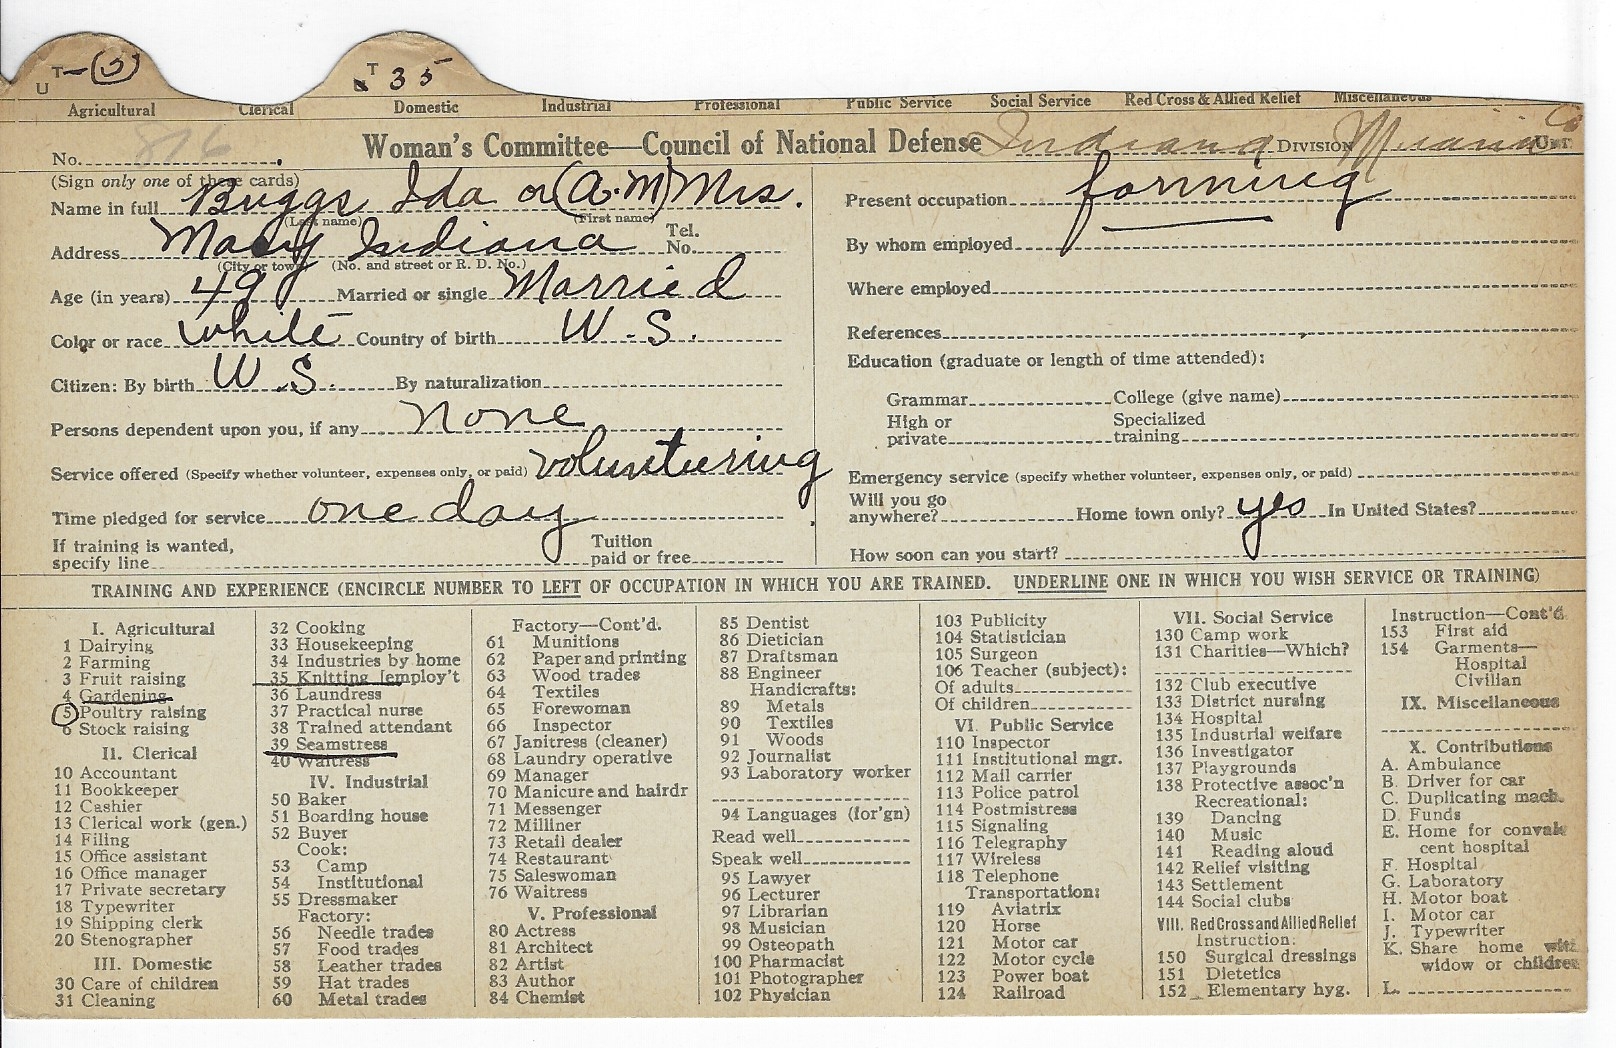 T-(5)
U
T 35
Agricultural Clerical Domestic Industrial Professional Public Service Social Service Red Cross & Allied Relief Miscellaneous
No. 816. Woman's Committee—Council of National Defense Indiana Division Unit
(Sign only one of these cards)
Name in full Buggs Ida or (A.M) Mrs.
(Last name) (First name)
Address Macy Indiana Tel. No.
(City or town) (No. and street or R. D. No.)
Age (in years) 49 Married or single Married
Color or race White Country of birth U.S.
Citizen: By birth U.S. By naturalization
Persons dependent upon you, if any none
Service offered (Specify whether volunteer, expenses only, or paid) volunteering
Time pledged for service one day
If training is wanted, specify line Tuition paid or free
Present occupation farming
By whom employed
Where employed
References
Education (graduate or length of time attended):
Grammar College (give name)
High or private Specialized training
Emergency service (specify whether volunteer, expenses only, or paid)
Will you go anywhere? Home town only? yes In United States?
How soon can you start?
TRAINING AND EXPERIENCE (ENCIRCLE NUMBER TO LEFT OF OCCUPATION IN WHICH YOU ARE TRAINED. UNDERLINE ONE IN WHICH YOU WISH SERVICE OR TRAINING)
I. Agricultural
1 Dairying
2 Farming
3 Fruit raising
4 Gardening
5 Poultry raising
6 Stock raising
II. Clerical
10 Accountant
11 Bookkeeper
12 Cashier
13 Clerical work (gen.)
14 Filing
15 Office assistant
16 Office manager
17 Private secretary
18 Typewriter
19 Shipping clerk
20 Stenographer
III. Domestic
30 Care of children
31 Cleaning
32 Cooking
33 Housekeeping
34 Industries by home
35 Knitting [employ't
36 Laundress
37 Practical nurse
38 Trained attendant
39 Seamstress
40 Waitress
IV. Industrial
50 Baker
51 Boarding house
52 Buyer
Cook:
53 Camp
54 Institutional
55 Dressmaker
Factory:
56 Needle trades
57 Food trades
58 Leather trades
59 Hat trades
60 Metal trades
Factory—Cont'd.
61 Munitions
62 Paper and printing
63 Wood trades
64 Textiles
65 Forewoman
66 Inspector
67 Janitress (cleaner)
68 Laundry operative
69 Manager
70 Manicure and hairdr
71 Messenger
72 Milliner
73 Retail dealer
74 Restaurant
75 Saleswoman
76 Waitress
V. Professional
80 Actress
81 Architect
82 Artist
83 Author
84 Chemist
85 Dentist
86 Dietician
87 Draftsman
88 Engineer
Handicrafts:
89 Metals
90 Textiles
91 Woods
92 Journalist
93 Laboratory worker
94 Languages (for'gn)
Read well
Speak well
95 Lawyer
96 Lecturer
97 Librarian
98 Musician
99 Osteopath
100 Pharmacist
101 Photographer
102 Physician
103 Publicity
104 Statistician
105 Surgeon
106 Teacher (subject):
Of adults
Of children
VI. Public Service
110 Inspector
111 Institutional mgr.
112 Mail carrier
113 Police patrol
114 Postmistress
115 Signaling
116 Telegraphy
117 Wireless
118 Telephone
Transportation:
119 Aviatrix
120 Horse
121 Motor car
122 Motor cycle
123 Power boat
124 Railroad
VII. Social Service
130 Camp work
131 Charities—Which?
132 Club executive
133 District nursing
134 Hospital
135 Industrial welfare
136 Investigator
137 Playgrounds
138 Protective assoc'n
Recreational:
139 Dancing
140 Music
141 Reading aloud
142 Relief visiting
143 Settlement
144 Social clubs
VIII. Red Cross and Allied Relief
Instruction:
150 Surgical dressings
151 Dietetics
152 Elementary hyg.
Instruction—Cont'd
153 First aid
154 Garments—
Hospital
Civilian
IX. Miscellaneous
X. Contributions
A. Ambulance
B. Driver for car
C. Duplicating mach.
D. Funds
E. Home for convales
cent hospital
F. Hospital
G. Laboratory
H. Motor boat
I. Motor car
J. Typewriter
K. Share home with
widow or children
L.